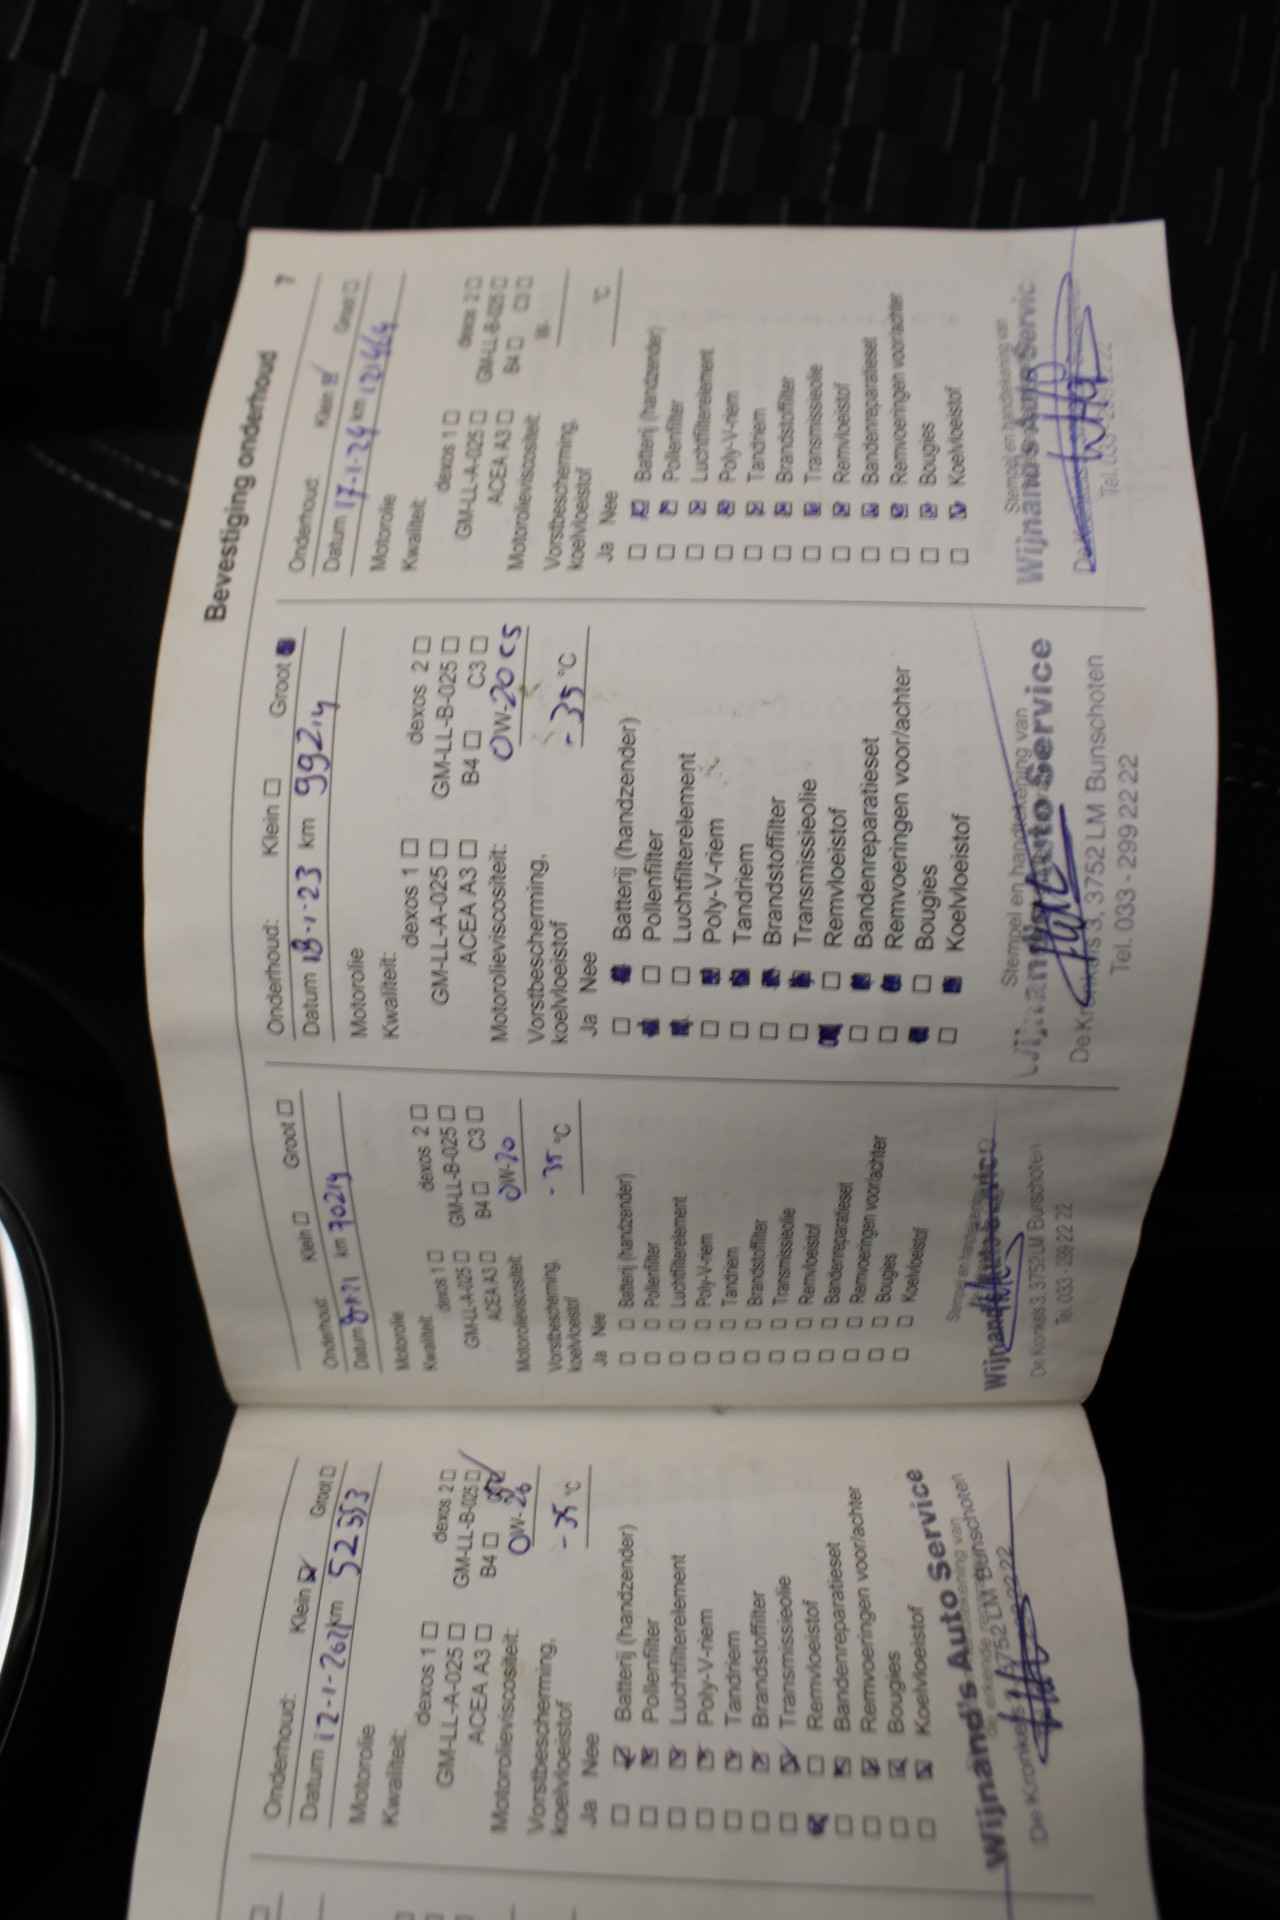 Bevestiging onderhoud
7
Onderhoud: Klein Groot
Datum 12-1- km 52553
Motorolie
Kwaliteit:
dexos 1 dexos 2
GM-LL-A-025 GM-LL-B-025
ACEA A3 B4
Motorolieviscositeit: 0W-20
Vorstbescherming,
koelvloeistof -35 °C
Ja Nee
Batterij (handzender)
Pollenfilter
Luchtfilterelement
Poly-V-riem
Tandriem
Brandstoffilter
Transmissieolie
Remvloeistof
Bandenreparatieset
Remvoeringen voor/achter
Bougies
Koelvloeistof
Wijnand's Auto Service
De Kronkels 3752 LM Bunschoten
Onderhoud: Klein Groot
Datum km 70219
Motorolie
Kwaliteit:
dexos 1 dexos 2
GM-LL-A-025 GM-LL-B-025
ACEA A3 B4 C3
Motorolieviscositeit: 0W-20
Vorstbescherming,
koelvloeistof -35 °C
Ja Nee
Batterij (handzender)
Pollenfilter
Luchtfilterelement
Poly-V-riem
Tandriem
Brandstoffilter
Transmissieolie
Remvloeistof
Bandenreparatieset
Remvoeringen voor/achter
Bougies
Koelvloeistof
Wijnand's Auto Service
De Kronkels 3, 3752 LM Bunschoten
Tel. 033 - 299 22 22
Onderhoud: Klein Groot
Datum 18-1-23 km 99214
Motorolie
Kwaliteit:
dexos 1 dexos 2
GM-LL-A-025 GM-LL-B-025
ACEA A3 B4 C3
Motorolieviscositeit: 0W-20 C5
Vorstbescherming,
koelvloeistof -35 °C
Ja Nee
Batterij (handzender)
Pollenfilter
Luchtfilterelement
Poly-V-riem
Tandriem
Brandstoffilter
Transmissieolie
Remvloeistof
Bandenreparatieset
Remvoeringen voor/achter
Bougies
Koelvloeistof
Stempel en handtekening van
Wijnand's Auto Service
De Kronkels 3, 3752 LM Bunschoten
Tel. 033 - 299 22 22
Onderhoud: Klein Groot
Datum 17-1-24 km 121464
Motorolie
Kwaliteit:
dexos 1 dexos 2
GM-LL-A-025 GM-LL-B-025
ACEA A3 B4 C3
Motorolieviscositeit: W-
Vorstbescherming,
koelvloeistof °C
Ja Nee
Batterij (handzender)
Pollenfilter
Luchtfilterelement
Poly-V-riem
Tandriem
Brandstoffilter
Transmissieolie
Remvloeistof
Bandenreparatieset
Remvoeringen voor/achter
Bougies
Koelvloeistof
Stempel en handtekening van
Wijnand's Auto Servic
Tel. 033 -